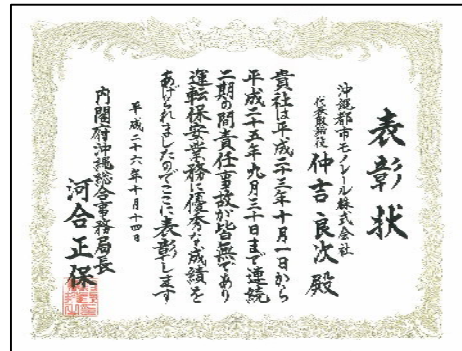 表彰状
沖縄都市モノレール株式会社
代表取締役 仲吉良次 殿
貴社は平成二十三年十月一日から
平成二十五年九月三十日まで連続
二期の間責任事故が皆無であり
運転保安業務に優秀な成績を
あげられましたのでここに表彰します
平成二十六年十月十四日
内閣府沖縄総合事務局長
河合正保